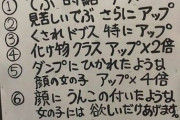 ① でぶ
② 見苦しいでぶ さらにアップ
③ くされドブス 特にアップ
④ 化け物クラス アップ×2倍
⑤ ダンプにひかれたような
顔の女の子 アップ×4倍
⑥ 顔にうんこの付いたような
女の子には 欲しいだけあげます。